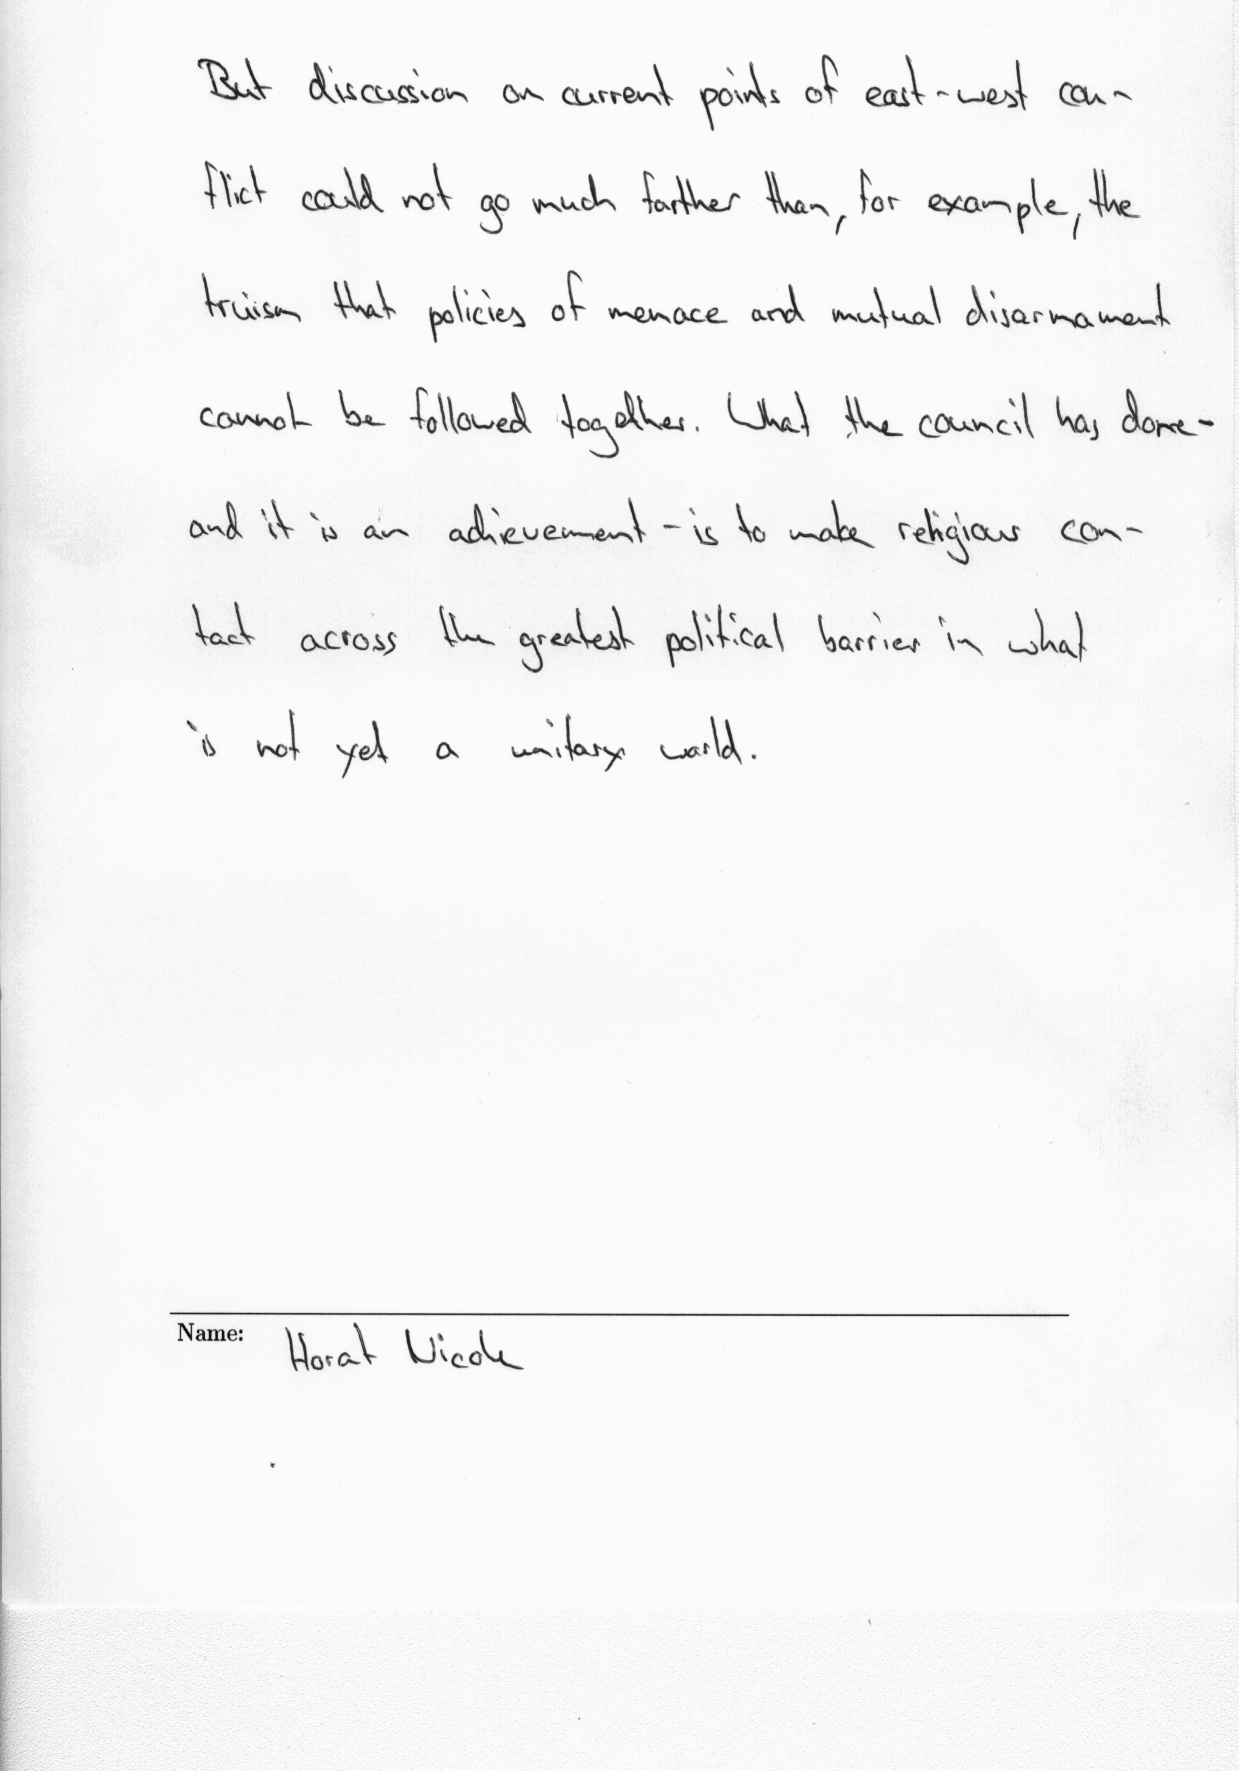 But discussion on current points of east-west con-
flict could not go much farther than, for example, the
truism that policies of menace and mutual disarmament
cannot be followed together. What the council has done-
and it is an achievement - is to make religious con-
tact across the greatest political barrier in what
is not yet a unitary world.
Name: Horat Nicole